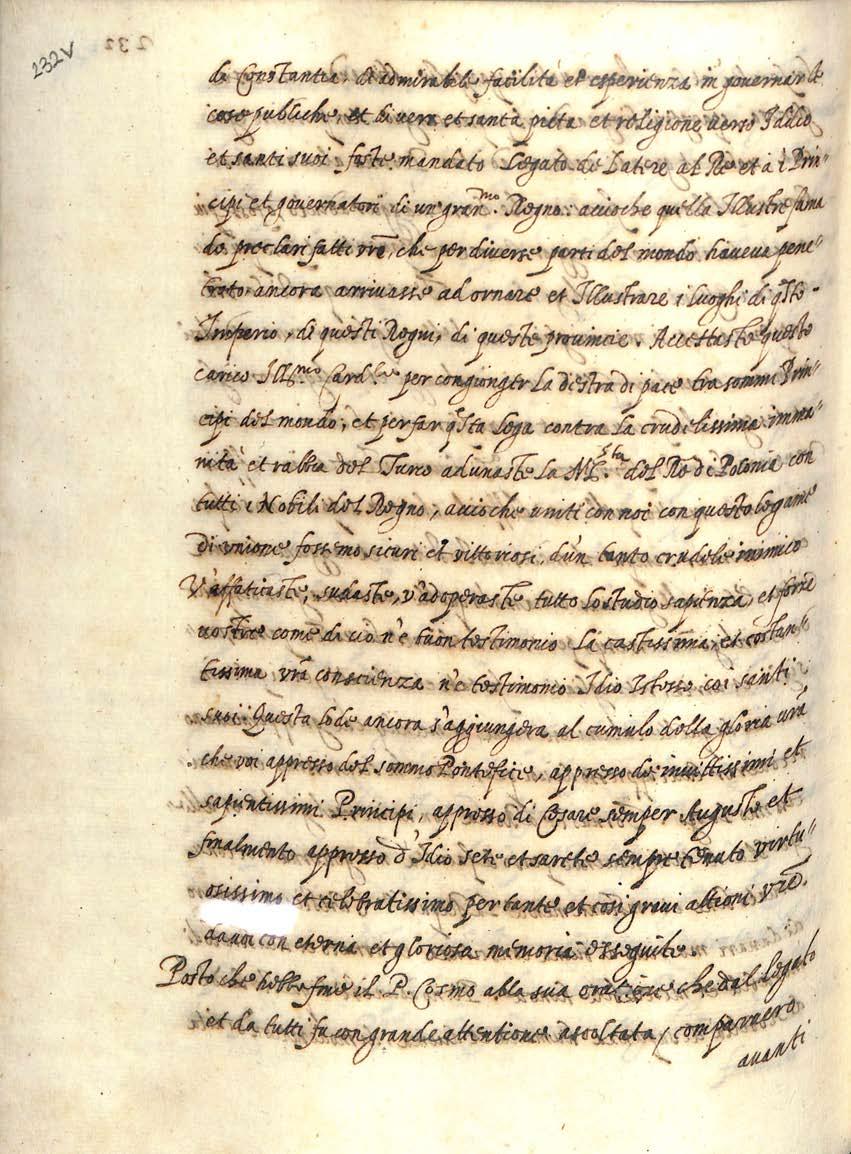 232v
232
di Constantia, di admirabile facilità et esperienza in governar le
cose publiche, et di vera et santa pieta et religione verso Iddio
et santi suoi, foste mandato Legato de Latere al Re et a i Prin"
cipi et governatori di un gran.mo Regno: accioche quella Illustre fama
de preclari fatti vrĩ, che per diverse parti del mondo haveva pene"
trato ancora arrivasse ad ornare et Illustrare i luoghi di qsto
Imperio, di questi Regni, di queste provincie. Accettaste questo
carico Ill.mo Card.le per congionger la destra di pace tra sommi Prin"
cipi del mondo, et per far qsta lega contra la crudelissima imma"
nità et rabbia del Turco adunaste la M.stà del Re di Polonia con
tutti i Nobili del Regno, accioche uniti con noi con questo legame
Di unione fossemo sicuri et vittoriosi, d'un tanto crudele inimico
V'affaticaste, sudaste, v'adoperaste tutto lo studio sapienza, et forze
vostre come di ciò n'è buon testimonio la castissima, et costan"
tissima vrã conscienza n'è testimonio Idio Istesso coi santi
suoi. Questa lode ancora s'aggiungera al cumulo della gloria vrã
che voi appresso del sommo Pontefice, appresso de invittissimi et
sapientissimi Principi, appresso di Cesare semper Auguste et
finalmente appresso d'Idio sete et sarete sempre tenuto virtu"
osissimo et celebratissimo per tante et cosi gravi attioni vrẽ.
da voi con eterna et gloriosa memoria esseguite
Posto che hebbe fine il P. Cosmo alla sua oratione che dal legato
et da tutti fu con grande attentione ascoltata / comparvero
avanti